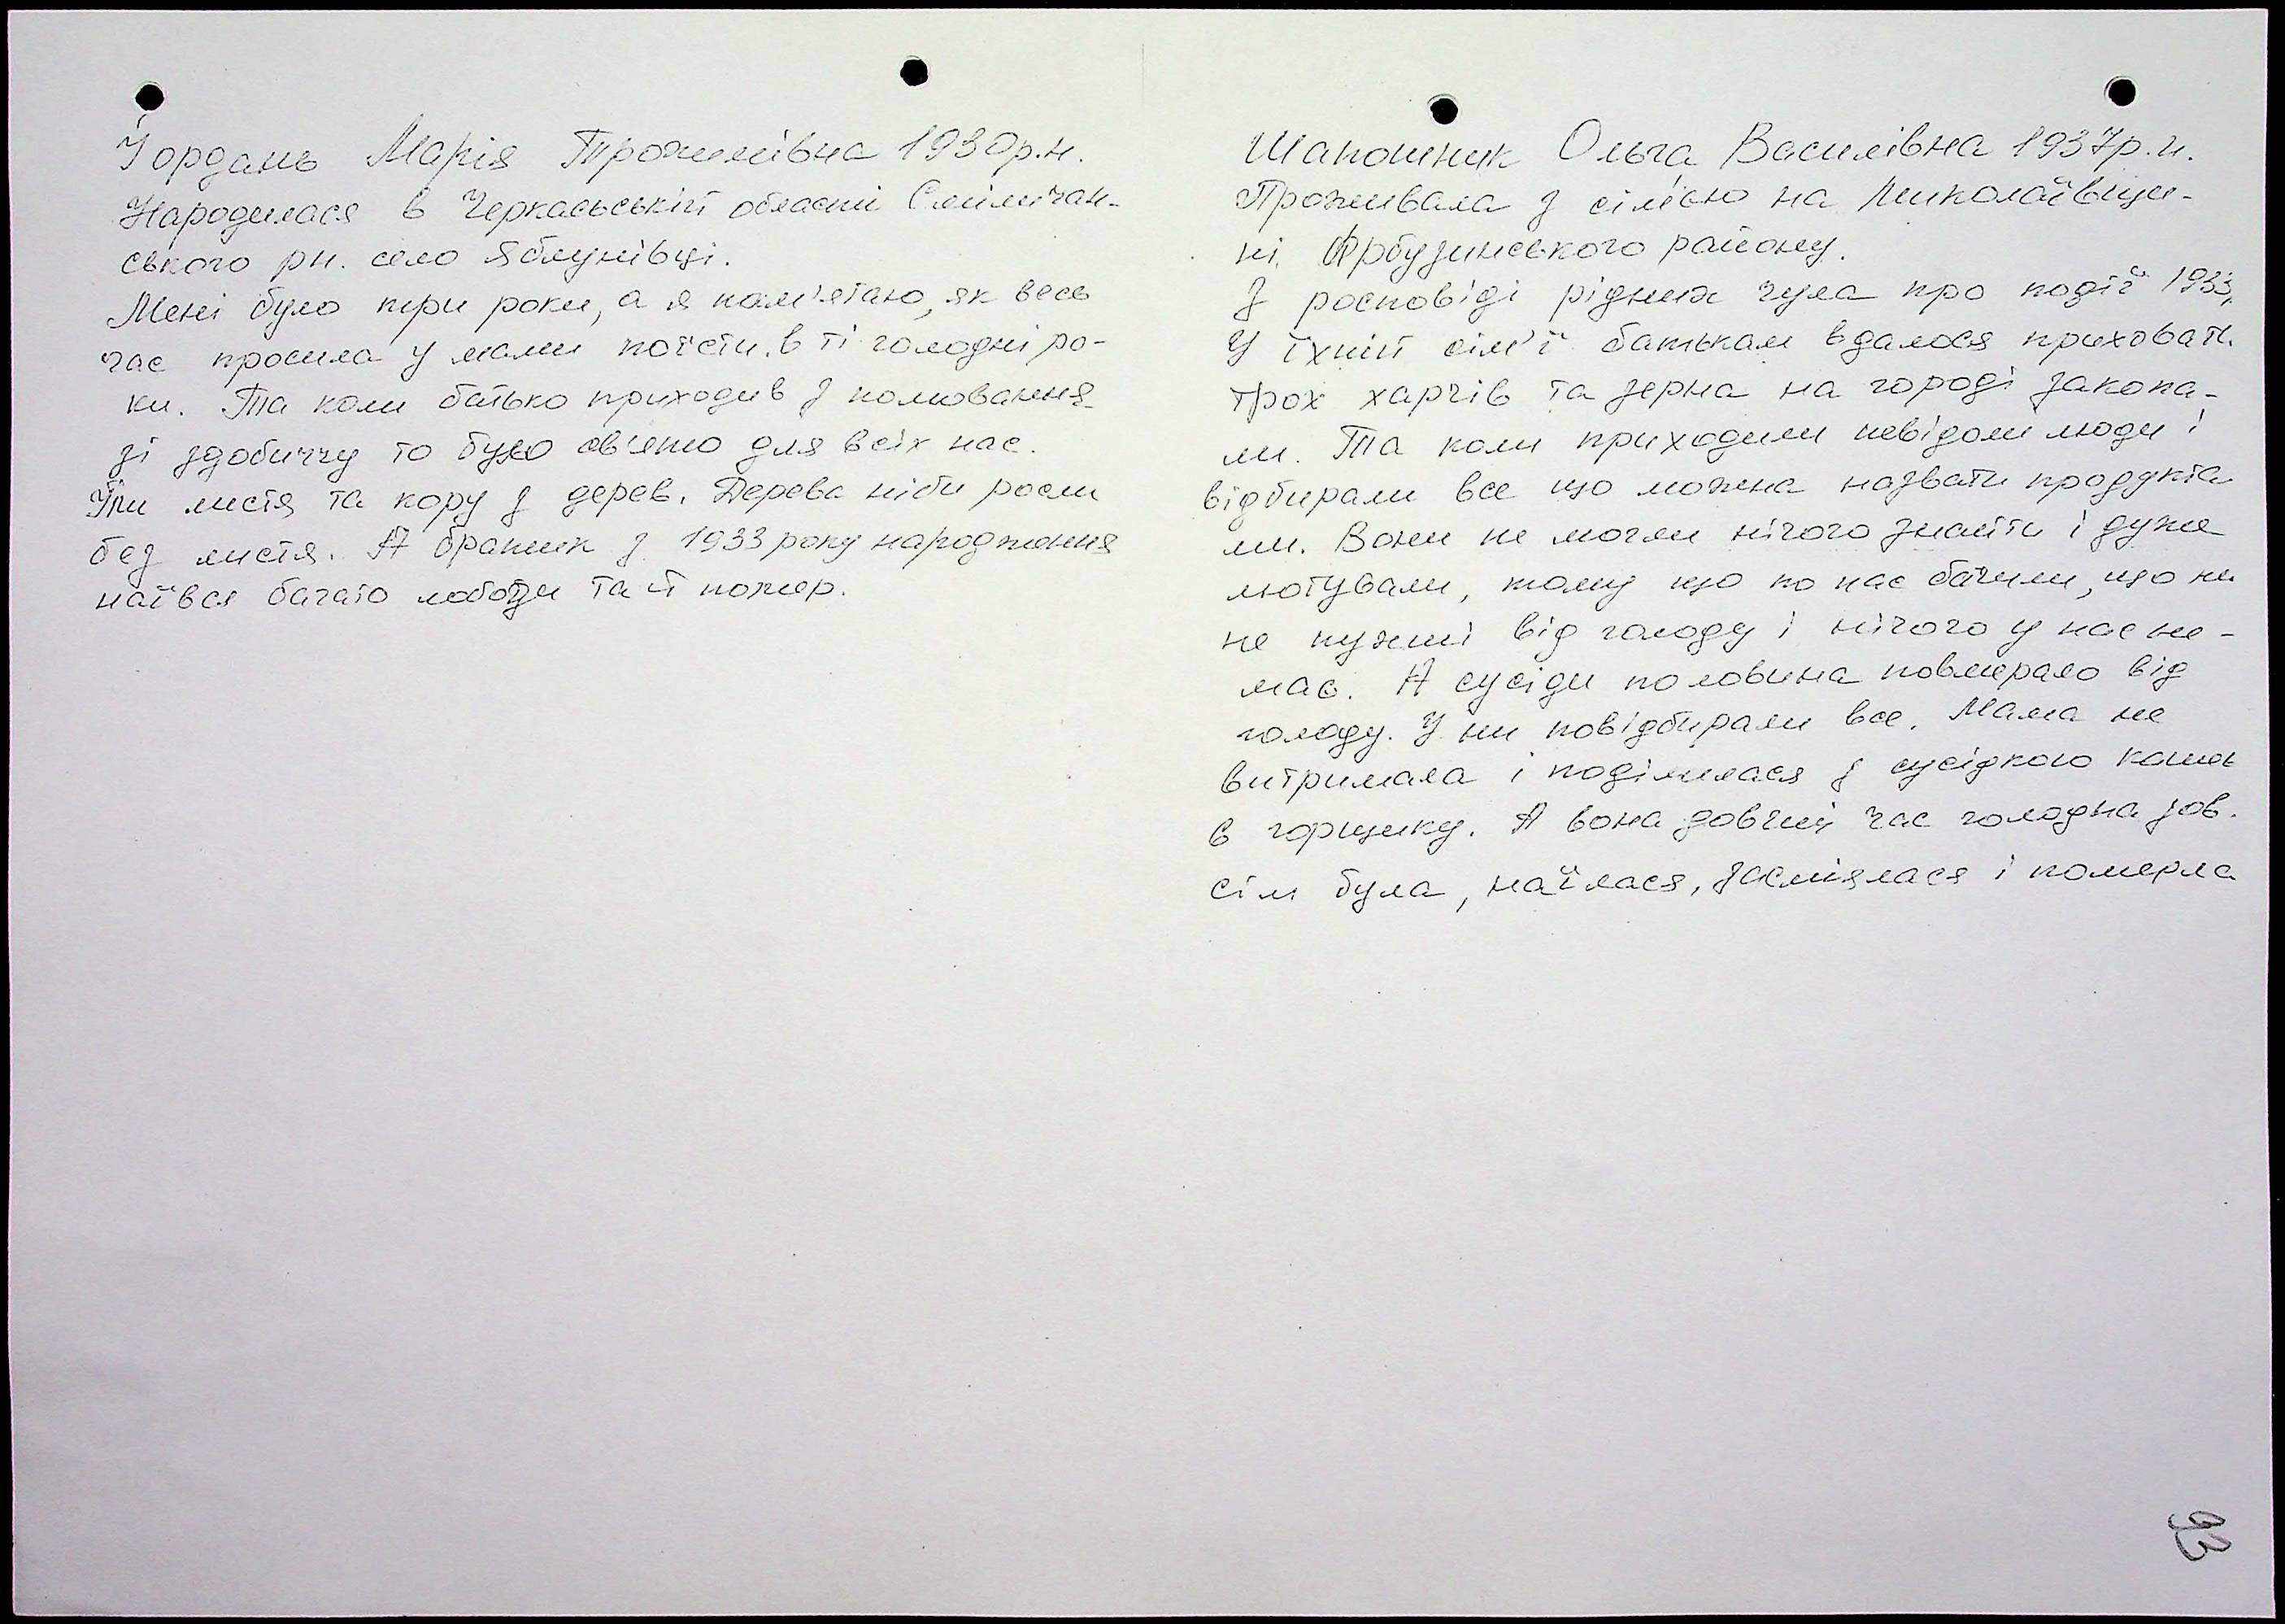 Йордань Марія Трохимівна 1930р.н.
Народилася в Черкасьській області Смілмчан-
ського рн. село Яблунівці.
Мені було три роки, а я пам'ятаю, як весь
час просила у мами поїсти. в ті голодні ро-
ки. Та коли батько приходив з полювання
зі здобиччу то було свято для всіх нас.
Їли листя та кору з дерев. Дерева ніби росли
без листя. А братик з 1933 року народження
наївся багато лободи та й помер.
Шапошник Ольга Василівна 1937р.н.
Проживала з сім'єю на Миколаївщи-
ні, Арбузинського району.
З росповіді рідних чула про події 1933.
У їхній сім'ї батькам вдалося приховати
трох харчів та зерна на городі закопа-
ли. Та коли приходили невідоми люди і
відбирали все що можна назвати продукта
ми. Вони не могли нічого знайти і дуже
лютували, тому що по нас бачили, що ми
не пухлі від голоду і нічого у нас не-
має. А сусіди половина повмерало від
голоду. У ни повідбирали все. Мама не
витримала і поділилася з сусідкою кашею
в горщику. А вона довгий час голодна зов.
сім була, наїлася, засміялася і померла
93